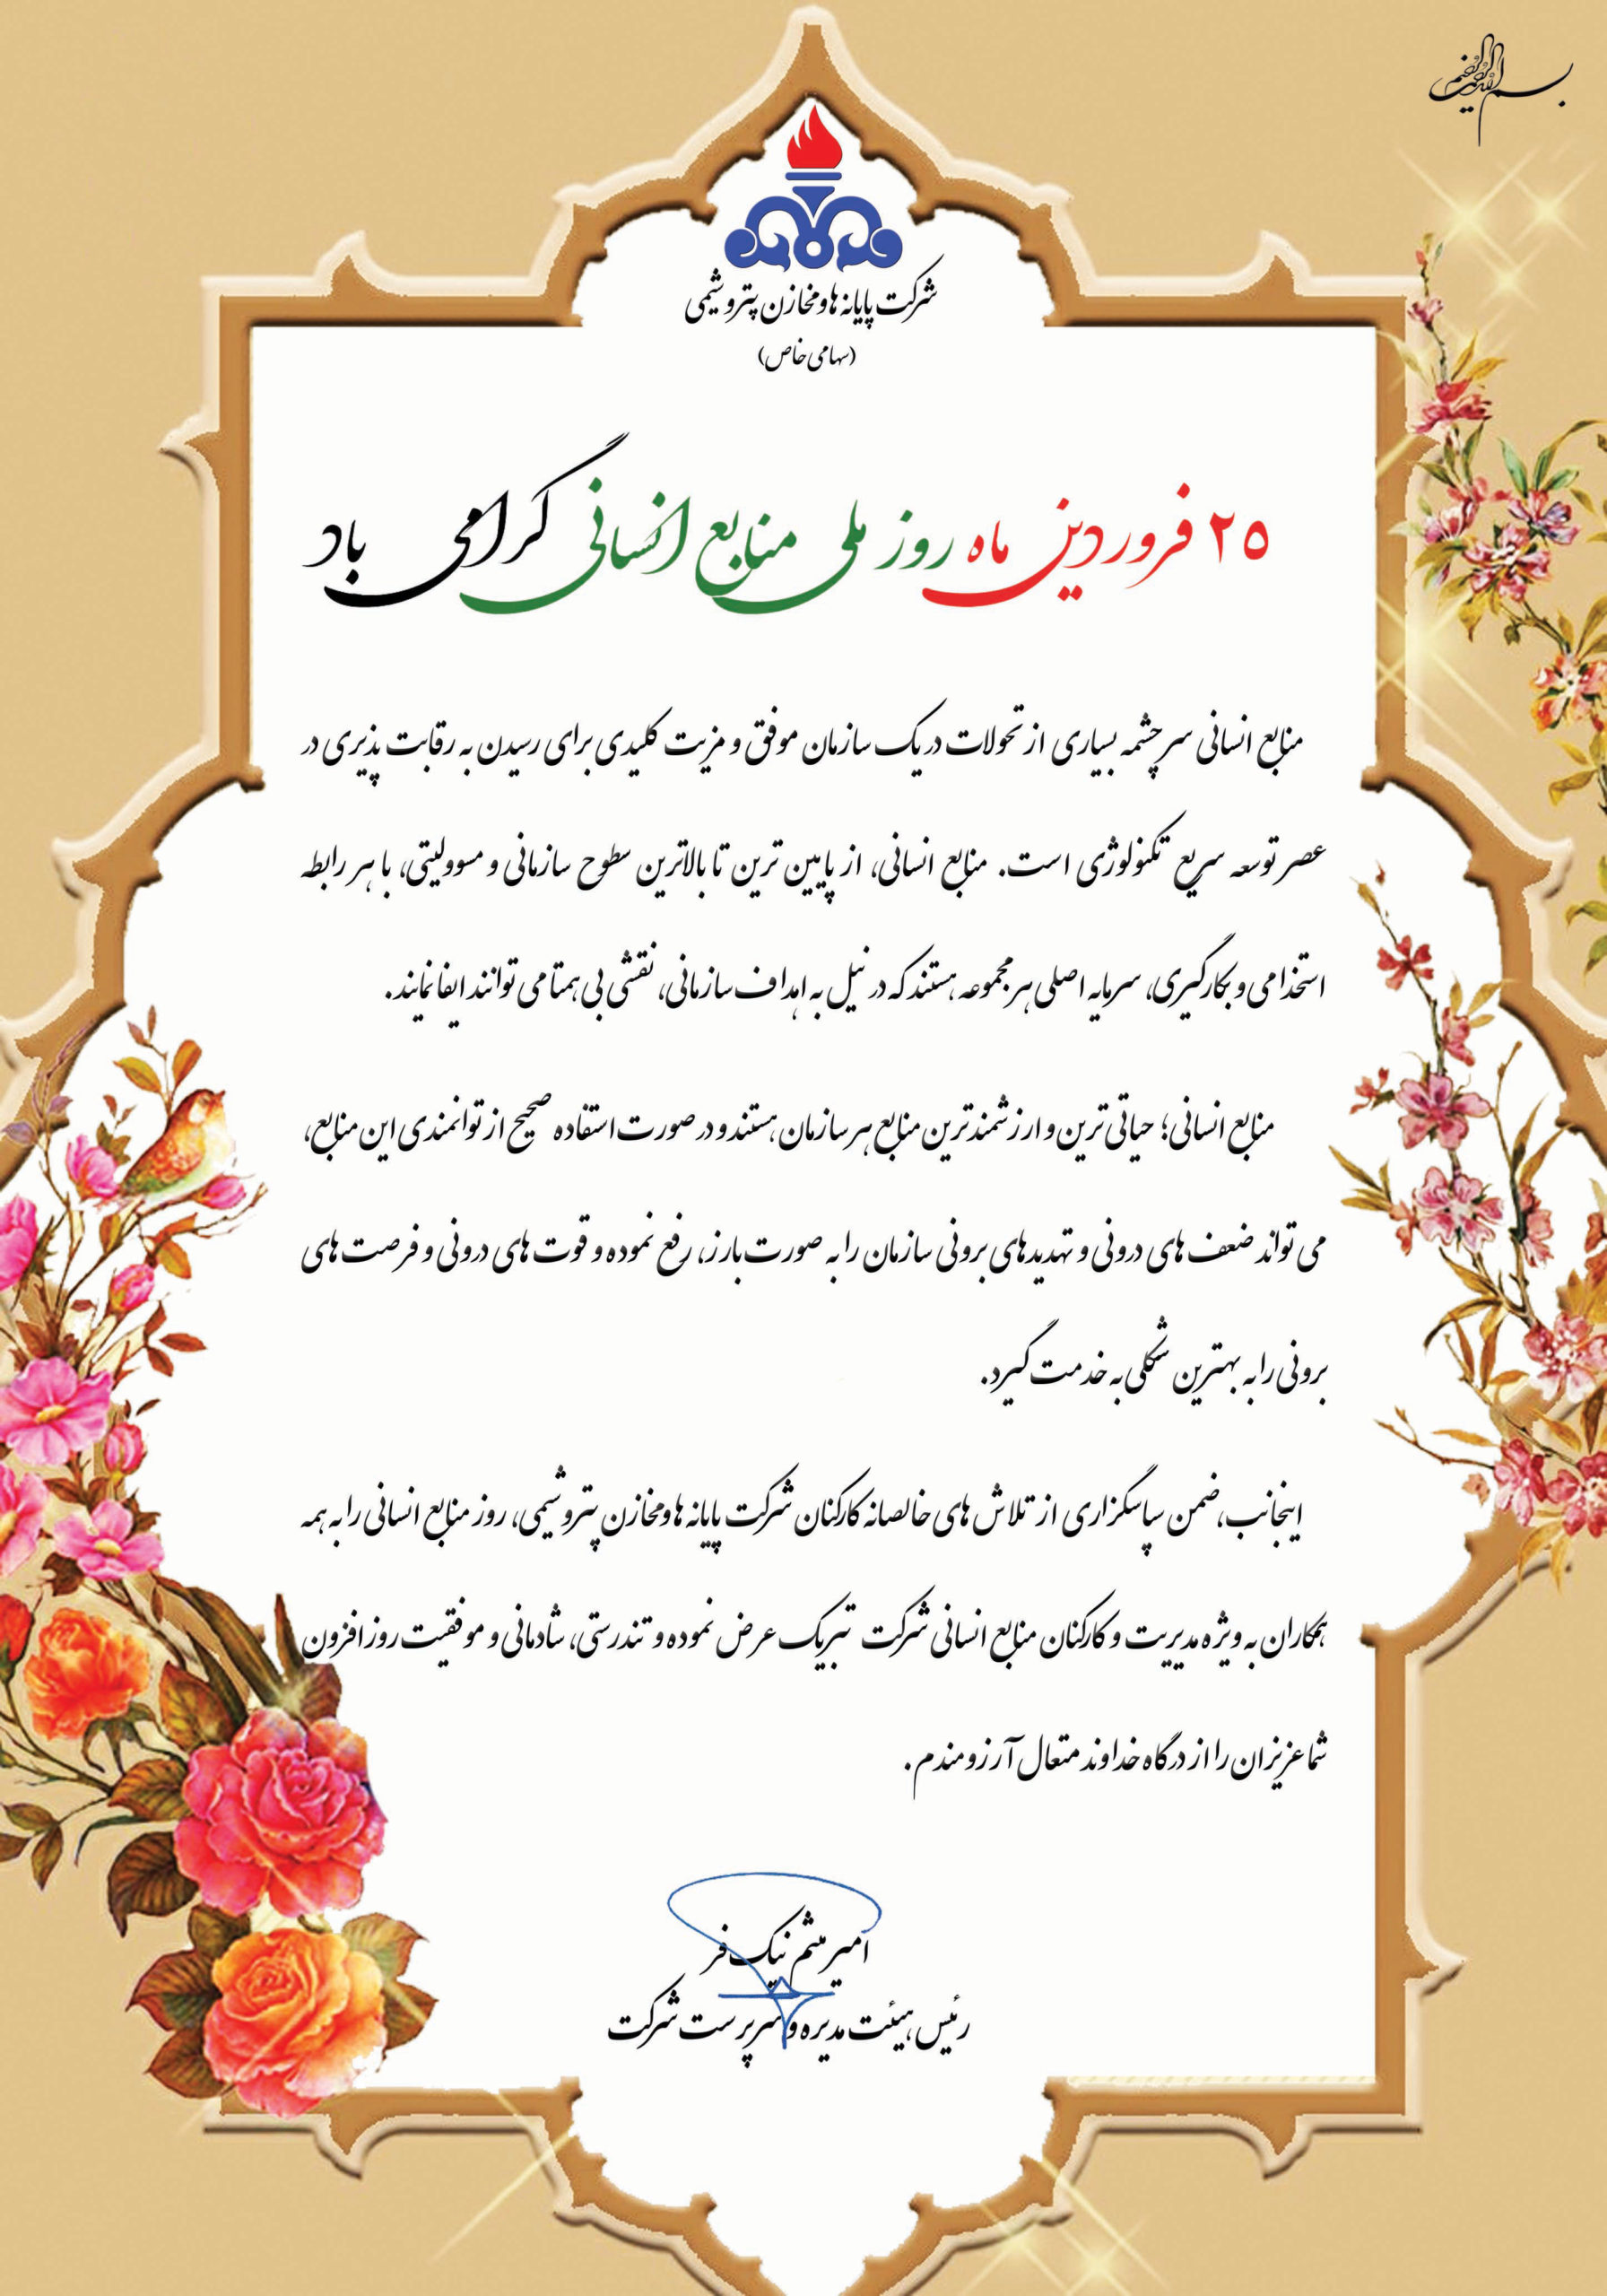 بسم الله الرحمن الرحیم
شرکت پایانه ها و مخازن پتروشیمی
(سهامی خاص)
۲۵ فروردین ماه روز ملی منابع انسانی گرامی باد
منابع انسانی سرچشمه بسیاری از تحولات در یک سازمان موفق و مزیت کلیدی برای رسیدن به رقابت پذیری در
عصر توسعه سریع تکنولوژی است. منابع انسانی، از پایین ترین تا بالاترین سطوح سازمانی و مسوولیتی، با هر رابطه
استخدامی و بکارگیری، سرمایه اصلی هر مجموعه هستند که در نیل به اهداف سازمانی، نقشی بی همتا می توانند ایفا نمایند.
منابع انسانی؛ حیاتی ترین و ارزشمندترین منابع هر سازمان هستند و در صورت استفاده صحیح از توانمندی این منابع،
می تواند ضعف های درونی و تهدیدهای برونی سازمان را به صورت بارز، رفع نموده و قوت های درونی و فرصت های
برونی را به بهترین شکلی به خدمت گیرد.
اینجانب، ضمن سپاسگزاری از تلاش های خالصانه کارکنان شرکت پایانه ها و مخازن پتروشیمی، روز منابع انسانی را به همه
همکاران به ویژه مدیریت و کارکنان منابع انسانی شرکت تبریک عرض نموده و تندرستی، شادمانی و موفقیت روز افزون
شما عزیزان را از درگاه خداوند متعال آرزومندم.
امیر میثم نیک فر
رئیس هیئت مدیره و سرپرست شرکت